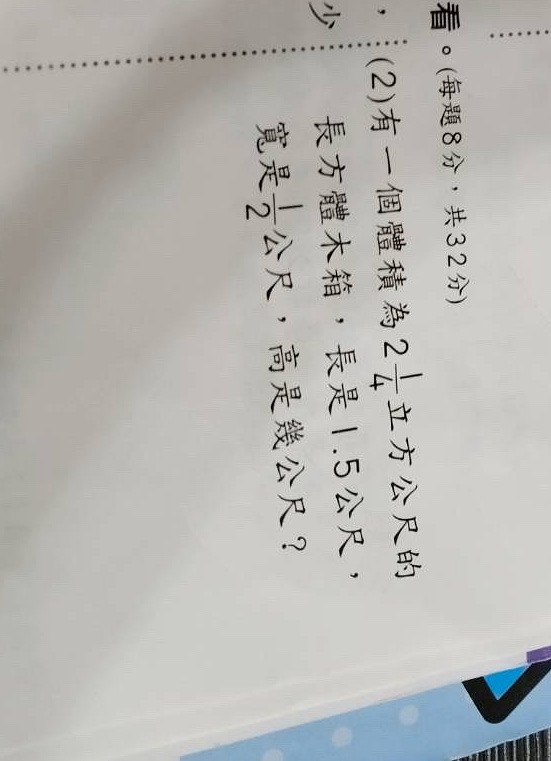 看。(每題8分，共32分)
，
少
(2)有一個體積為2 1/4立方公尺的
長方體木箱，長是1.5公尺，
寬是1/2公尺，高是幾公尺？